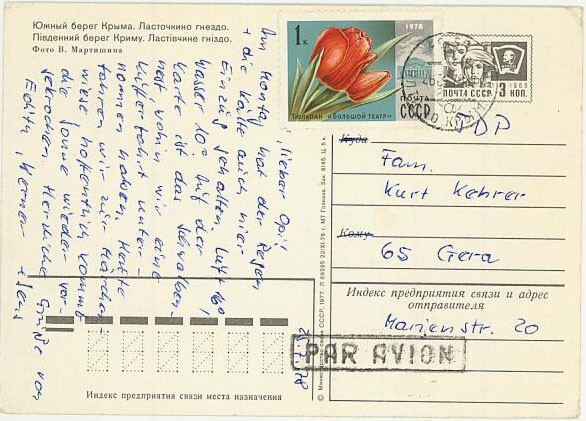 Южный берег Крыма. Ласточкино гнездо.
Південний берег Криму. Ластівчине гніздо.
Фото В. Мартишина
1 к.
1978
ПОЧТА
СССР
Тюльпан «Большой театр»
ПОЧТА СССР 1966
3 КОП.
DDR
Куда
Fam.
Kurt Kehrer
Кому
65 Gera
Индекс предприятия связи и адрес
отправителя
Marienstr. 20
PAR AVION
25.7.78
Lieber Opi!
Am Montag hat der Regen
+ die Kälte auch hier
Einzug gehalten. Luft 16°
Wasser 10°. Auf der
Karte ist das Schwalben-
nest, wohin wir eine
Kutterfahrt unter-
nommen haben. Heute
fahren wir zur Märchen-
wiese, hoffentlich kommt
die Sonne wieder vor-
gekrochen. Herzliche Grüße von
Edith, Werner + Jens
Индекс предприятия связи места назначения
© Министерство связи СССР, 1977.